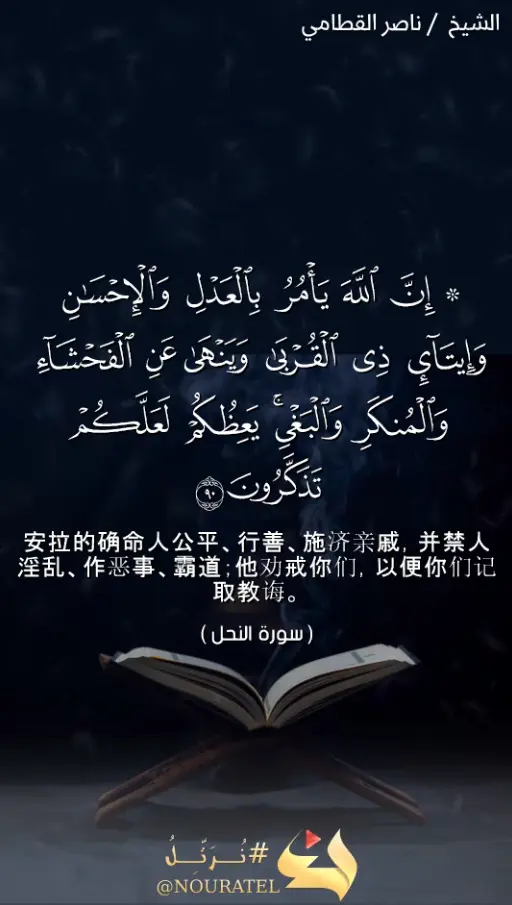 الشيخ / ناصر القطامي
* إِنَّ ٱللَّهَ يَأْمُرُ بِٱلْعَدْلِ وَٱلْإِحْسَـٰنِ
وَإِيتَآئِ ذِى ٱلْقُرْبَىٰ وَيَنْهَىٰ عَنِ ٱلْفَحْشَآءِ
وَٱلْمُنكَرِ وَٱلْبَغْىِ ۚ يَعِظُكُمْ لَعَلَّكُمْ
تَذَكَّرُونَ ٩٠
安拉的确命人公平、行善、施济亲戚, 并禁人
淫乱、作恶事、霸道;他劝戒你们, 以便你们记
取教诲。
( سورة النحل )
#نُرَتِّلُ
@NOURATEL